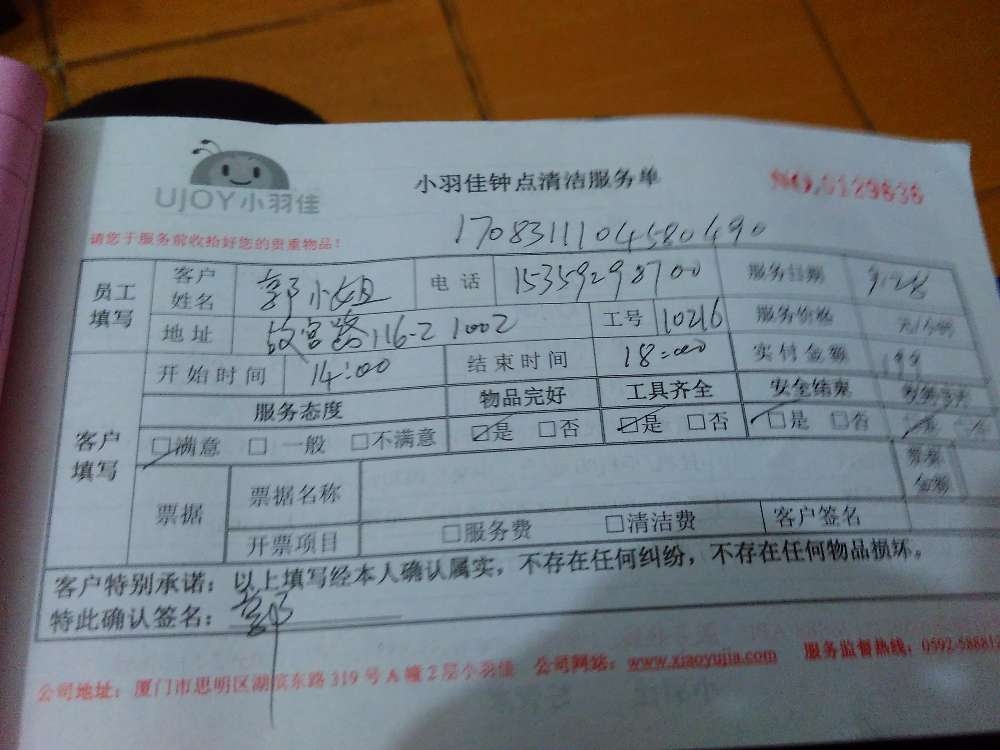 UJOY小羽佳
小羽佳钟点清洁服务单
NO.0129636
请您于服务前收拾好您的贵重物品！
1708311104580490
员工填写 客户姓名 郭小姐 电话 15359298700 服务日期 9.28
地址 故宫路116-2 1002 工号 10216 服务价格 元/小时
开始时间 14:00 结束时间 18:00 实付金额 199
客户填写 服务态度 物品完好 工具齐全 安全结束
□满意 □一般 □不满意 □是 □否 □是 □否 □是 □否
票据 票据名称 票据金额
开票项目 □服务费 □清洁费 客户签名
客户特别承诺：以上填写经本人确认属实，不存在任何纠纷，不存在任何物品损坏。
特此确认签名：郭
公司地址：厦门市思明区湖滨东路319号A幢2层小羽佳 公司网站：www.xiaoyujia.com 服务监督热线：0592-588812